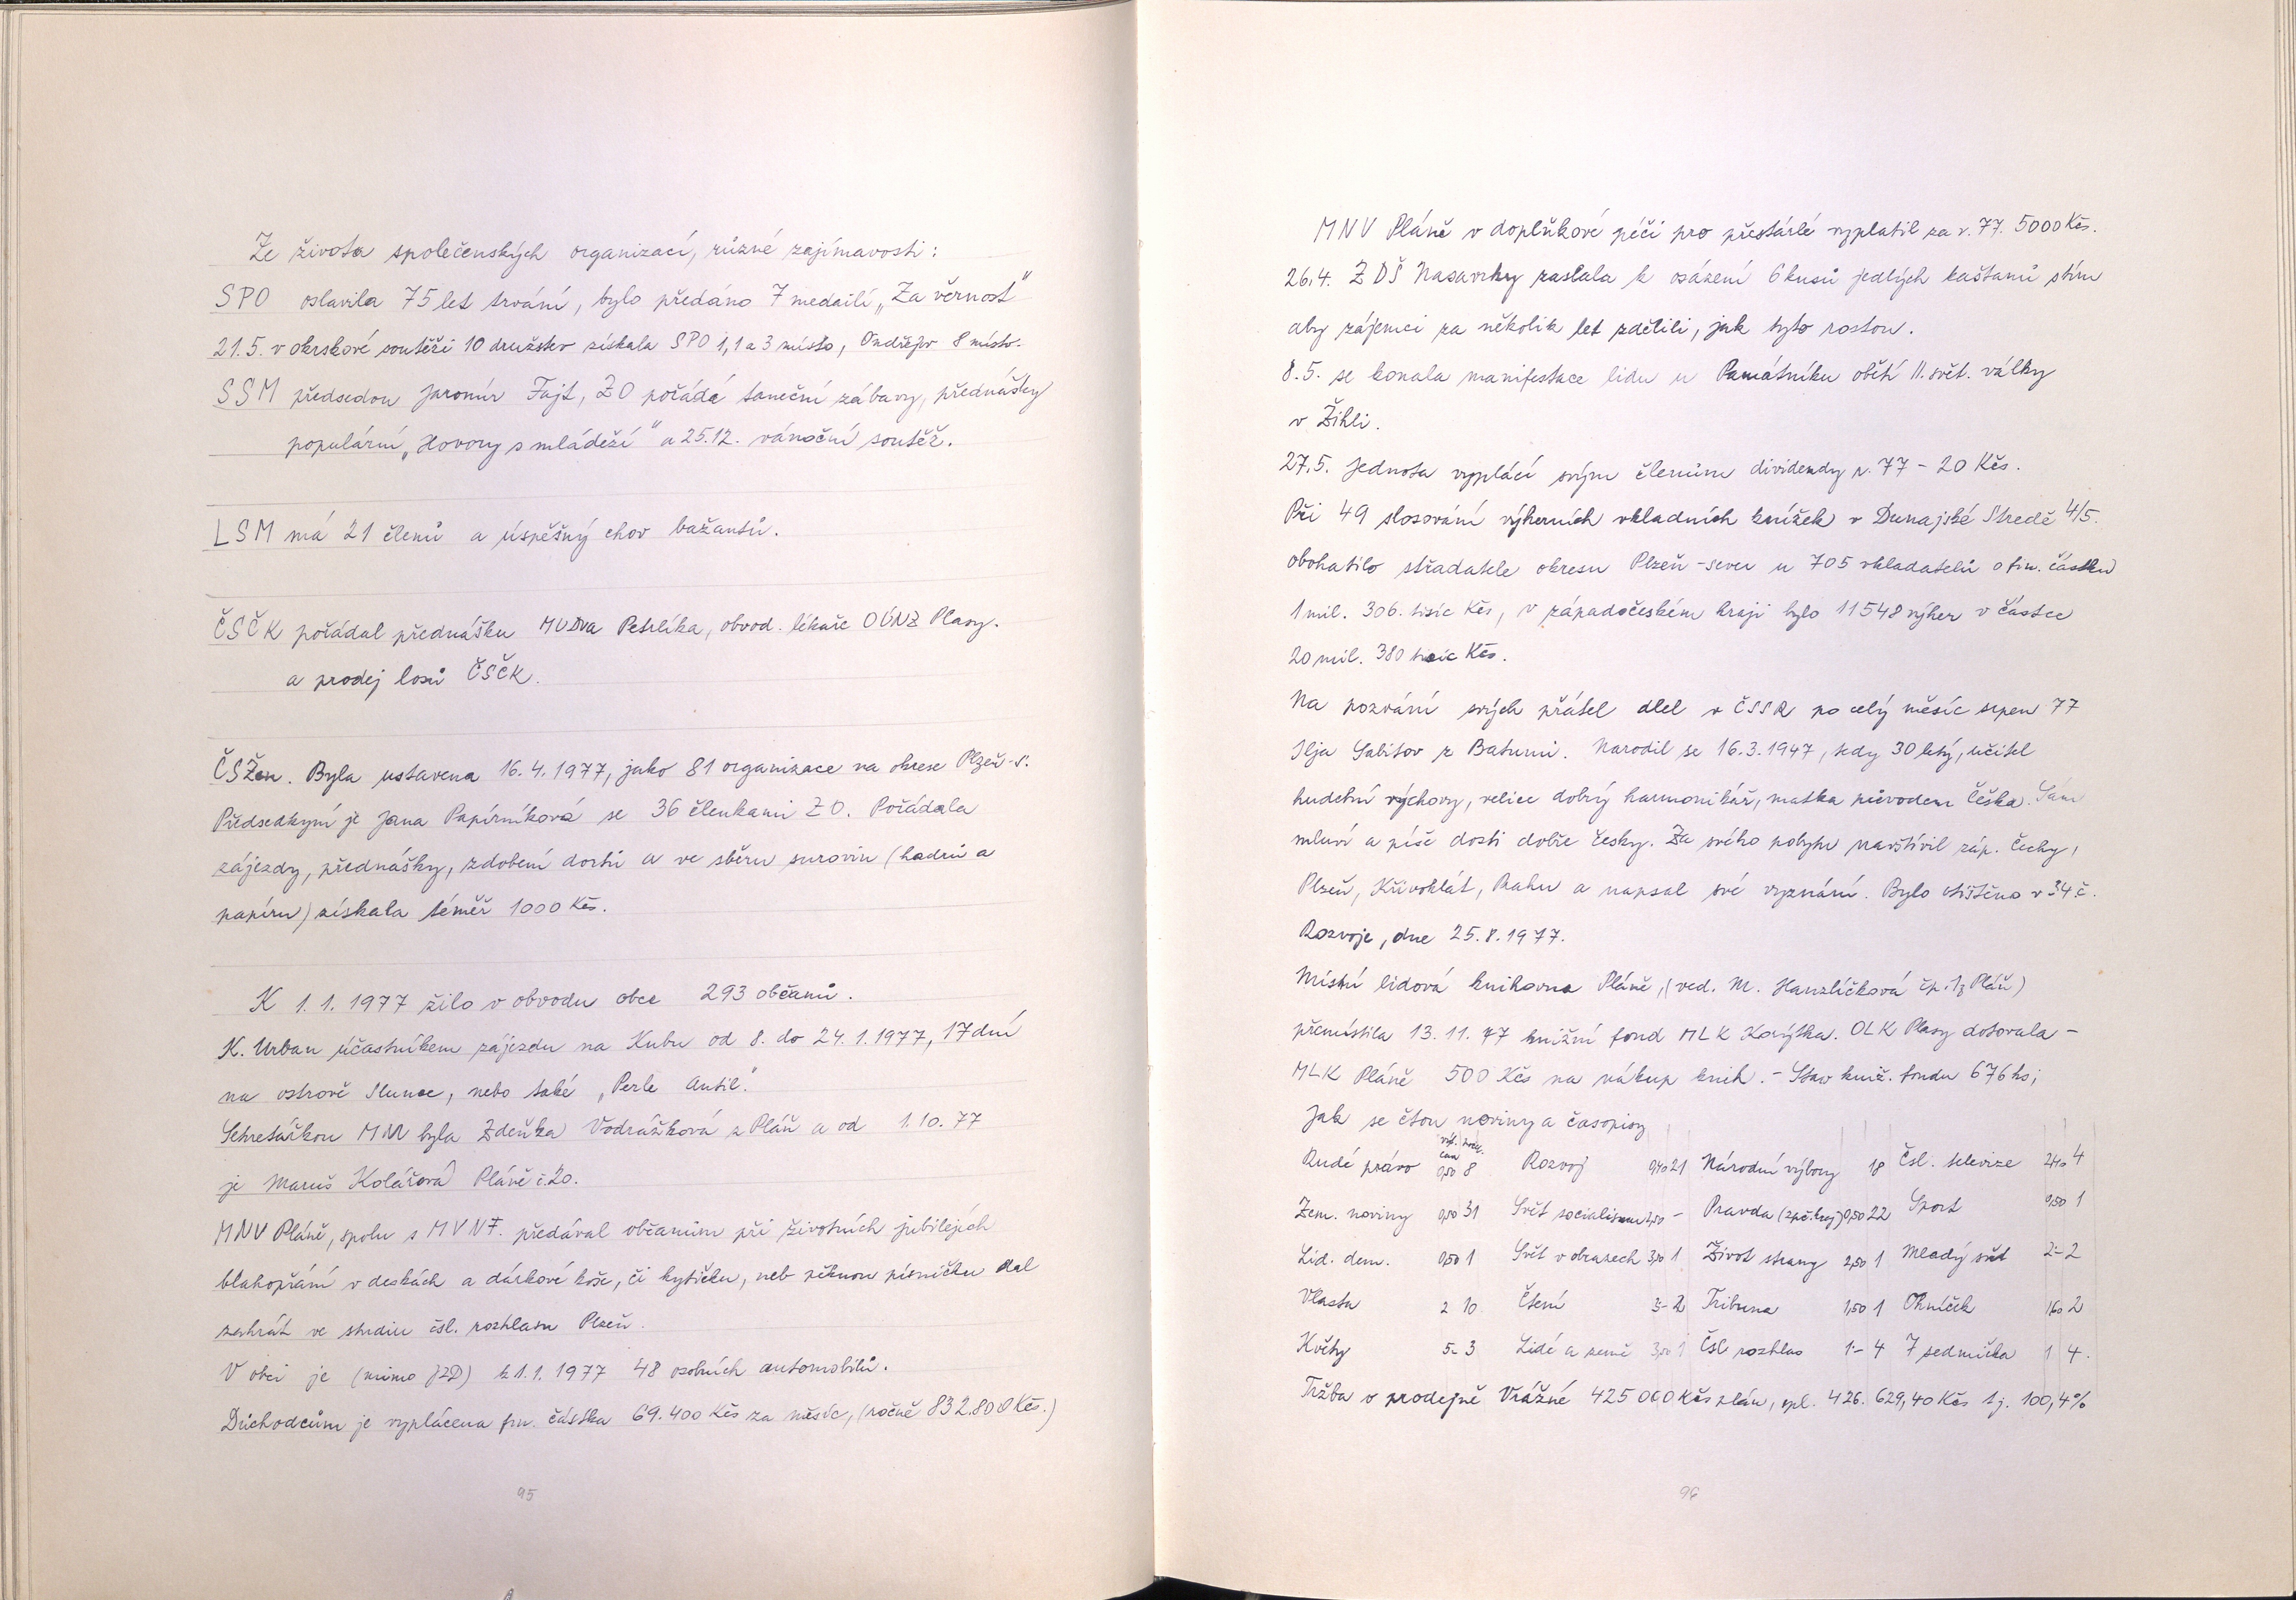 Ze života společenských organizací, různé zajímavosti:
SPO oslavila 75 let trvání, bylo předáno 7 medailí „Za věrnost"
21.5. v okrskové soutěži 10 družstev získala SPO 1, 1 a 3 místo, Ondřejov 8 místo.
SSM předsedou Jaromír Fajt, ZO pořádá taneční zábavy, přednášky
populární „Hovory s mládeží" a 25.12. vánoční soutěž.
LSM má 21 členů a úspěšný chov bažantů.
ČSČK pořádal přednášku MUDra Petrlíka, obvod. lékaře OÚNZ Plasy.
a prodej losů ČSČK.
ČSŽen. Byla ustavena 16.4.1977, jako 81 organizace na okrese Plzeň-s.
Předsedkyní je Jana Papírníková se 36 členkami ZO. Pořádala
zájezdy, přednášky, zdobení dortů a ve sběru surovin (hadrů a
papíru) získala téměř 1000 Kčs.
K 1.1.1977 žilo v obvodu obce 293 občanů.
K. Urban účastníkem zájezdu na Kubu od 8. do 24.1.1977, 17 dní
na ostrově Slunce, nebo také „Perle Antil."
Sekretářkou MNV byla Zdeňka Vodrážková z Pláň a od 1.10.77
je Maruš Kolářová Pláně č.20.
MNV Pláně, spolu s MVNF. předával občanům při životních jubilejích
blahopřání v deskách a dárkové koše, či kytičku, neb pěknou písničku dal
zahrát ve studiu čsl. rozhlasu Plzeň.
V obci je (mimo JZD) k 1.1.1977 48 osobních automobilů.
Důchodcům je vyplácena fin. částka 69.400 Kčs za měsíc, (ročně 832.800 Kčs.)
95
MNV Pláně v doplňkové péči pro přestárlé vyplatil za r. 77. 5000 Kčs.
26.4. ZDŠ Nasavrky zaslala k osázení 6 kusů jedlých kaštanů s tím
aby zájemci za několik let zdělili, jak tyto rostou.
8.5. se konala manifestace lidu u Památníku obětí II. svět. války
v Žihli.
27.5. Jednota vyplácí svým členům dividendy r. 77 - 20 Kčs.
Při 49 slosování výherních vkladních knížek v Dunajské Stredě 4/5.
obohatilo střadatele okresu Plzeň-sever u 705 vkladatelů o fin. částku
1 mil. 306. tisíc Kčs, v západočeském kraji bylo 11548 výher v částce
20 mil. 380 tisíc Kčs.
Na pozvání svých přátel dlel v ČSSR po celý měsíc srpen 77
Ilja Sabitov z Batumi. Narodil se 16.3.1947, tedy 30 letý, učitel
hudební výchovy, velice dobrý harmonikář, matka původem Češka. Sám
mluví a píše dosti dobře česky. Za svého pobytu navštívil záp. Čechy,
Plzeň, Křivoklát, Prahu a napsal své vyznání. Bylo otištěno v 34 č.
Rozvoje, dne 25.8.1977.
Místní lidová knihovna Pláně, (ved. M. Hanzlíčková čp. 1 z Pláň)
přemístila 13.11.77 knižní fond MLK Korýtka. OLK Plasy dotovala -
MLK Pláně 500 Kčs na nákup knih. - Stav kniž. fondu 676 ks;
Jak se čtou noviny a časopisy
Rudé právo cena 0,50 8 Rozvoj 0,40 21 Národní výbory 18 Čsl. televize 2,40 4
Zem. noviny 0,50 31 Svět socialismu 2,50 - Pravda (zpč. kraj) 0,50 22 Sport 0,50 1
Lid. dem. 0,50 1 Svět v obrazech 3,50 1 Život strany 2,50 1 Mladý svět 2- 2
Vlasta 2 10 Čtení 3- 2 Tribuna 1,50 1 Ohníček 1,60 2
Květy 5- 3 Lidé a země 3,50 1 Čsl rozhlas 1- 4 7 sedmička 1 4.
Tržba v prodejně Vrážné 425 000 Kčs plán, spl. 426.629,40 Kčs tj. 100,4%
96